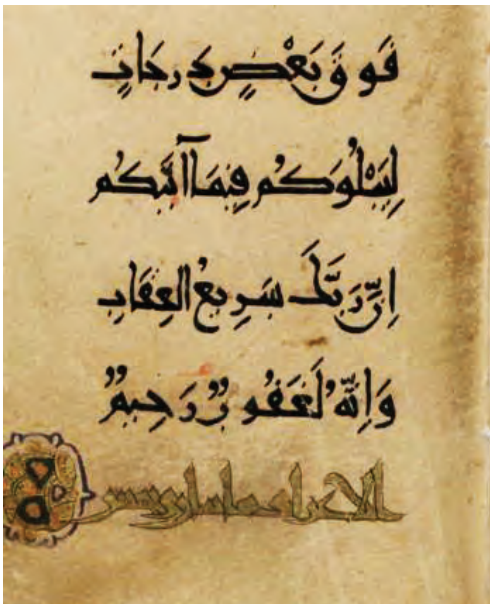 فَوقَ بَعْضٍ دَرجَاتٍ
لِيَبْلُوَكُم فِيمَا آتَيكُم
اِنَّ رَبَّكَ سَرِيعُ العِقَابِ
وَاِنَّهُ لَغَفُورٌ رَحِيمٌ
الاعراف مايتان